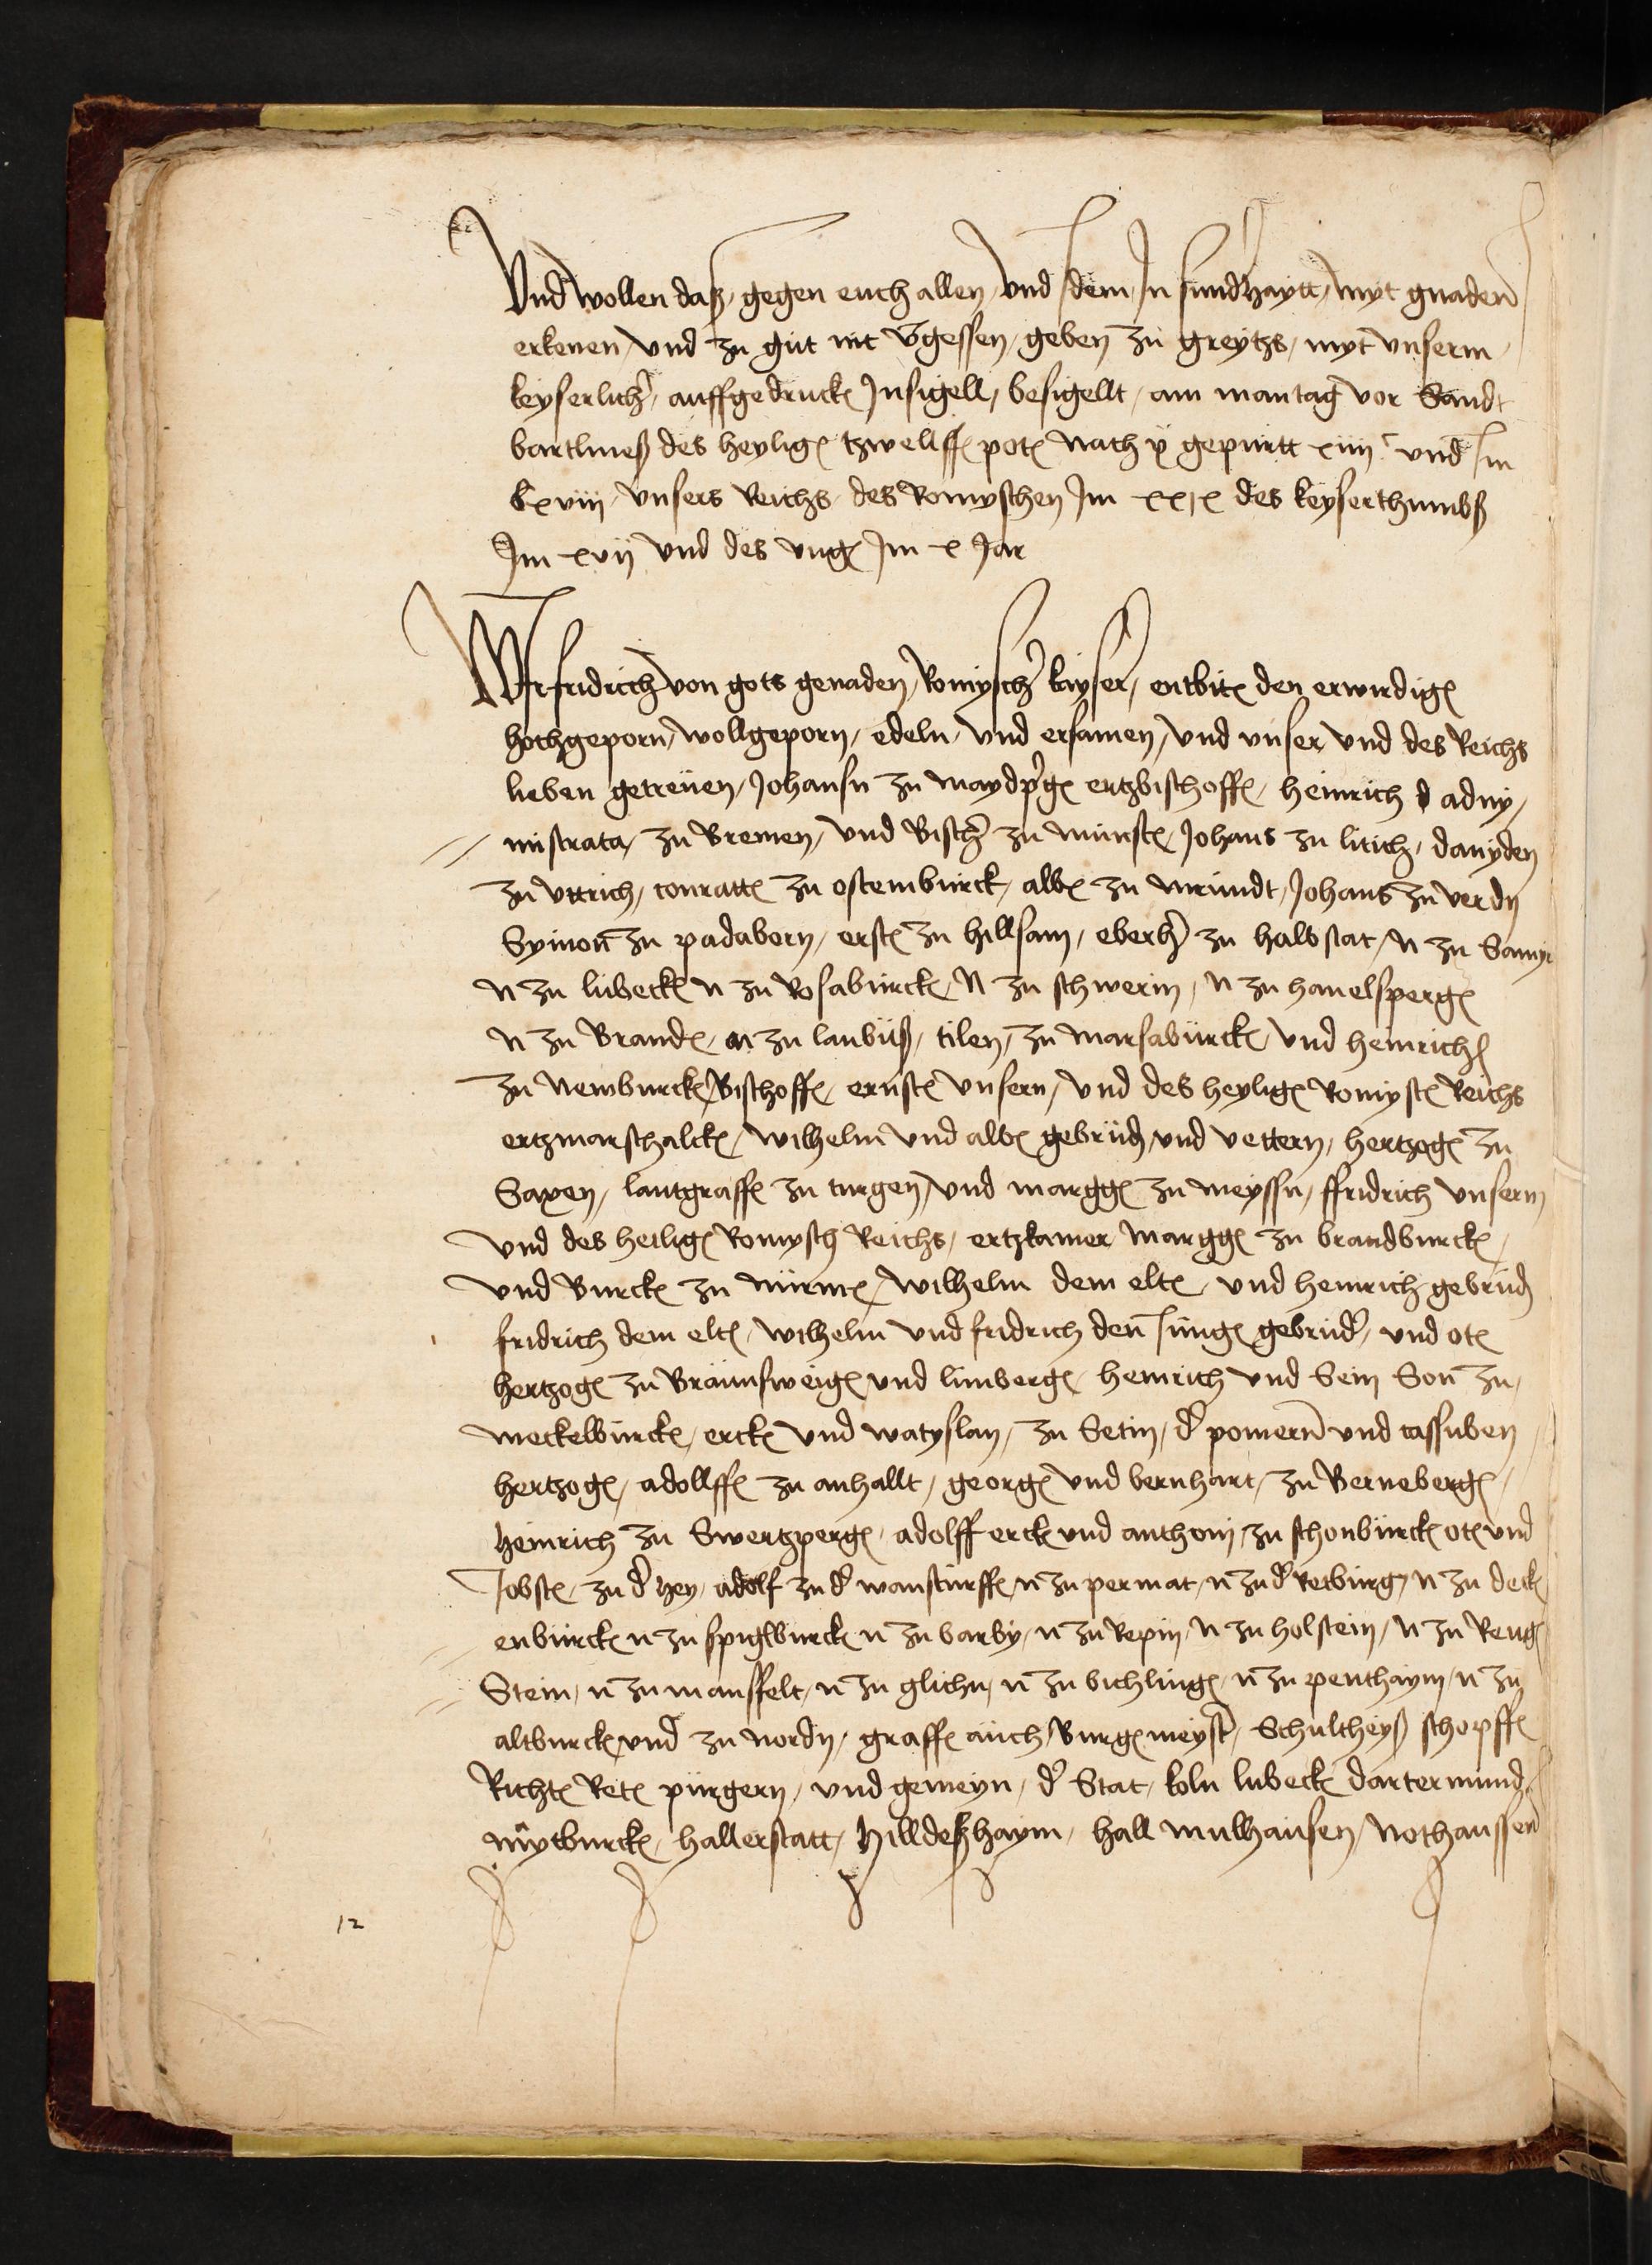 Vnd wollen daß / gegen euch allen / vnd Idem / In sund'haytt / myt gnaden
erkenen / vnd zu gut nit v'gessen / geben zu greytzs / myt vnserm
keyserlich' / auffgedruck Insigell / besigellt / am mantag vor Sandt
bartlmeß des heylig tzwellff pot Nach gepurtt xiiij c vnd Im
lxviij / vnsers Reichs des Romyschen Im xxix des keyserthumbß
Im xvij vnd des vng Im x Jar
Wir fridrich von gots genaden / Romysch' kayser / entbit den erwirdig
hochgeporn / wollgeporn / edeln / vnd ersamen / vnd vnser vnd des Reichs
lieben getreuen / Johansn zu maydp'g ertzbischoff / heinrich d adny /
mistrata / zu Bremen / vnd Bisch' zu munst / Johans zu litich / dauyden
zu vttrich / conratt zu ostemburck / alb zu mundt / Johans zu verdn
Symon zu padabern / erst zu hillsam / eberh' zu halbstat / N zu Samy
N zu lubeck N zu Rosaburck / N zu schwerin / N zu hauelsperg
N zu Brand / N zu laubuß / tilen / zu marsaburck / vnd heinrich
zu Newburck / Bischoff / ernst vnsern / vnd des heylig Romyst Reichs
ertzmarschalck / wilhelm vnd alb gebrud / vnd vettern / hertzog zu
Saxen / lantgraff zu turgen / vnd margg zu meyssn / ffridrich vnsern
vnd des heilig Romysch Reichs / ertzkamer margg zu brandburck /
vnd Burck zu nurm / wilhelm dem elt / vnd heinrich gebrud
fridrich dem elt / wilhelm vnd fridrich den Jung gebrud' / vnd ot
hertzog zu Braunsweig vnd lunberg / heinrich vnd Sein Son zu /
meckelburck / erck vnd watyslan / zu Setin / d' pomern vnd cassuben
hertzog / adollff zu anhallt / georg vnd bernhart / zu Berneberg /
heinrich zu Swertzperg / adolff erck vnd anthoni / zu schonburck ot vnd
Jobst / zu d' hey / adolf zu d' wansturff / N zu permat / N zu d' Retburg / N zu deck
enburck N zu spiglburck N zu barby / N zu Repin / N zu holstein / N zu Reng
Stein / N zu mansffelt / N zu glichn / N zu bichling / N zu penthaym / N zu
altburck / vnd zu nordn / graff auch / Burg meyst' / Schultheyß schopff
Richt Ret purgern / vnd gemeyn / d' Stat / koln lubeck dartermund
mytburck / hallerstatt / hilldeßhaym / hall mulhausen / Nothaussen
12